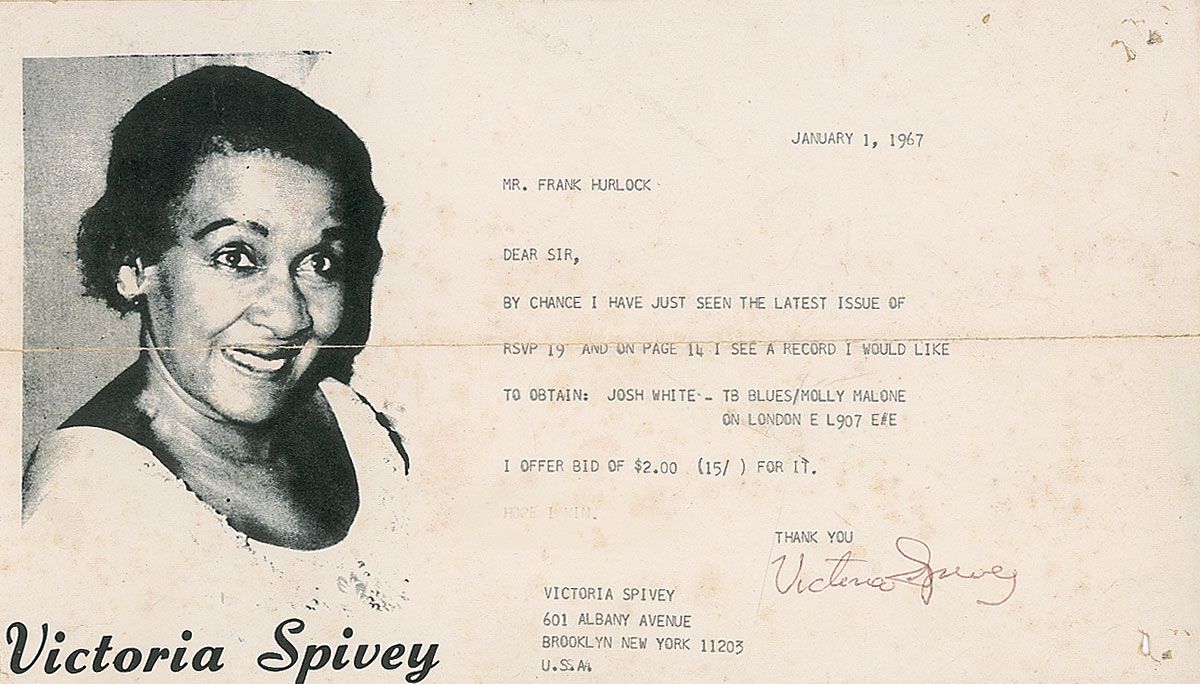 JANUARY 1, 1967
MR. FRANK HURLOCK
DEAR SIR,
BY CHANCE I HAVE JUST SEEN THE LATEST ISSUE OF
RSVP 19 AND ON PAGE 14 I SEE A RECORD I WOULD LIKE
TO OBTAIN: JOSH WHITE - TB BLUES/MOLLY MALONE
ON LONDON E L907 E/E
I OFFER BID OF $2.00 (15/ ) FOR IT.
HOPE I WIN.
THANK YOU
Victoria Spivey
VICTORIA SPIVEY
601 ALBANY AVENUE
BROOKLYN NEW YORK 11203
U.S.A.
Victoria Spivey